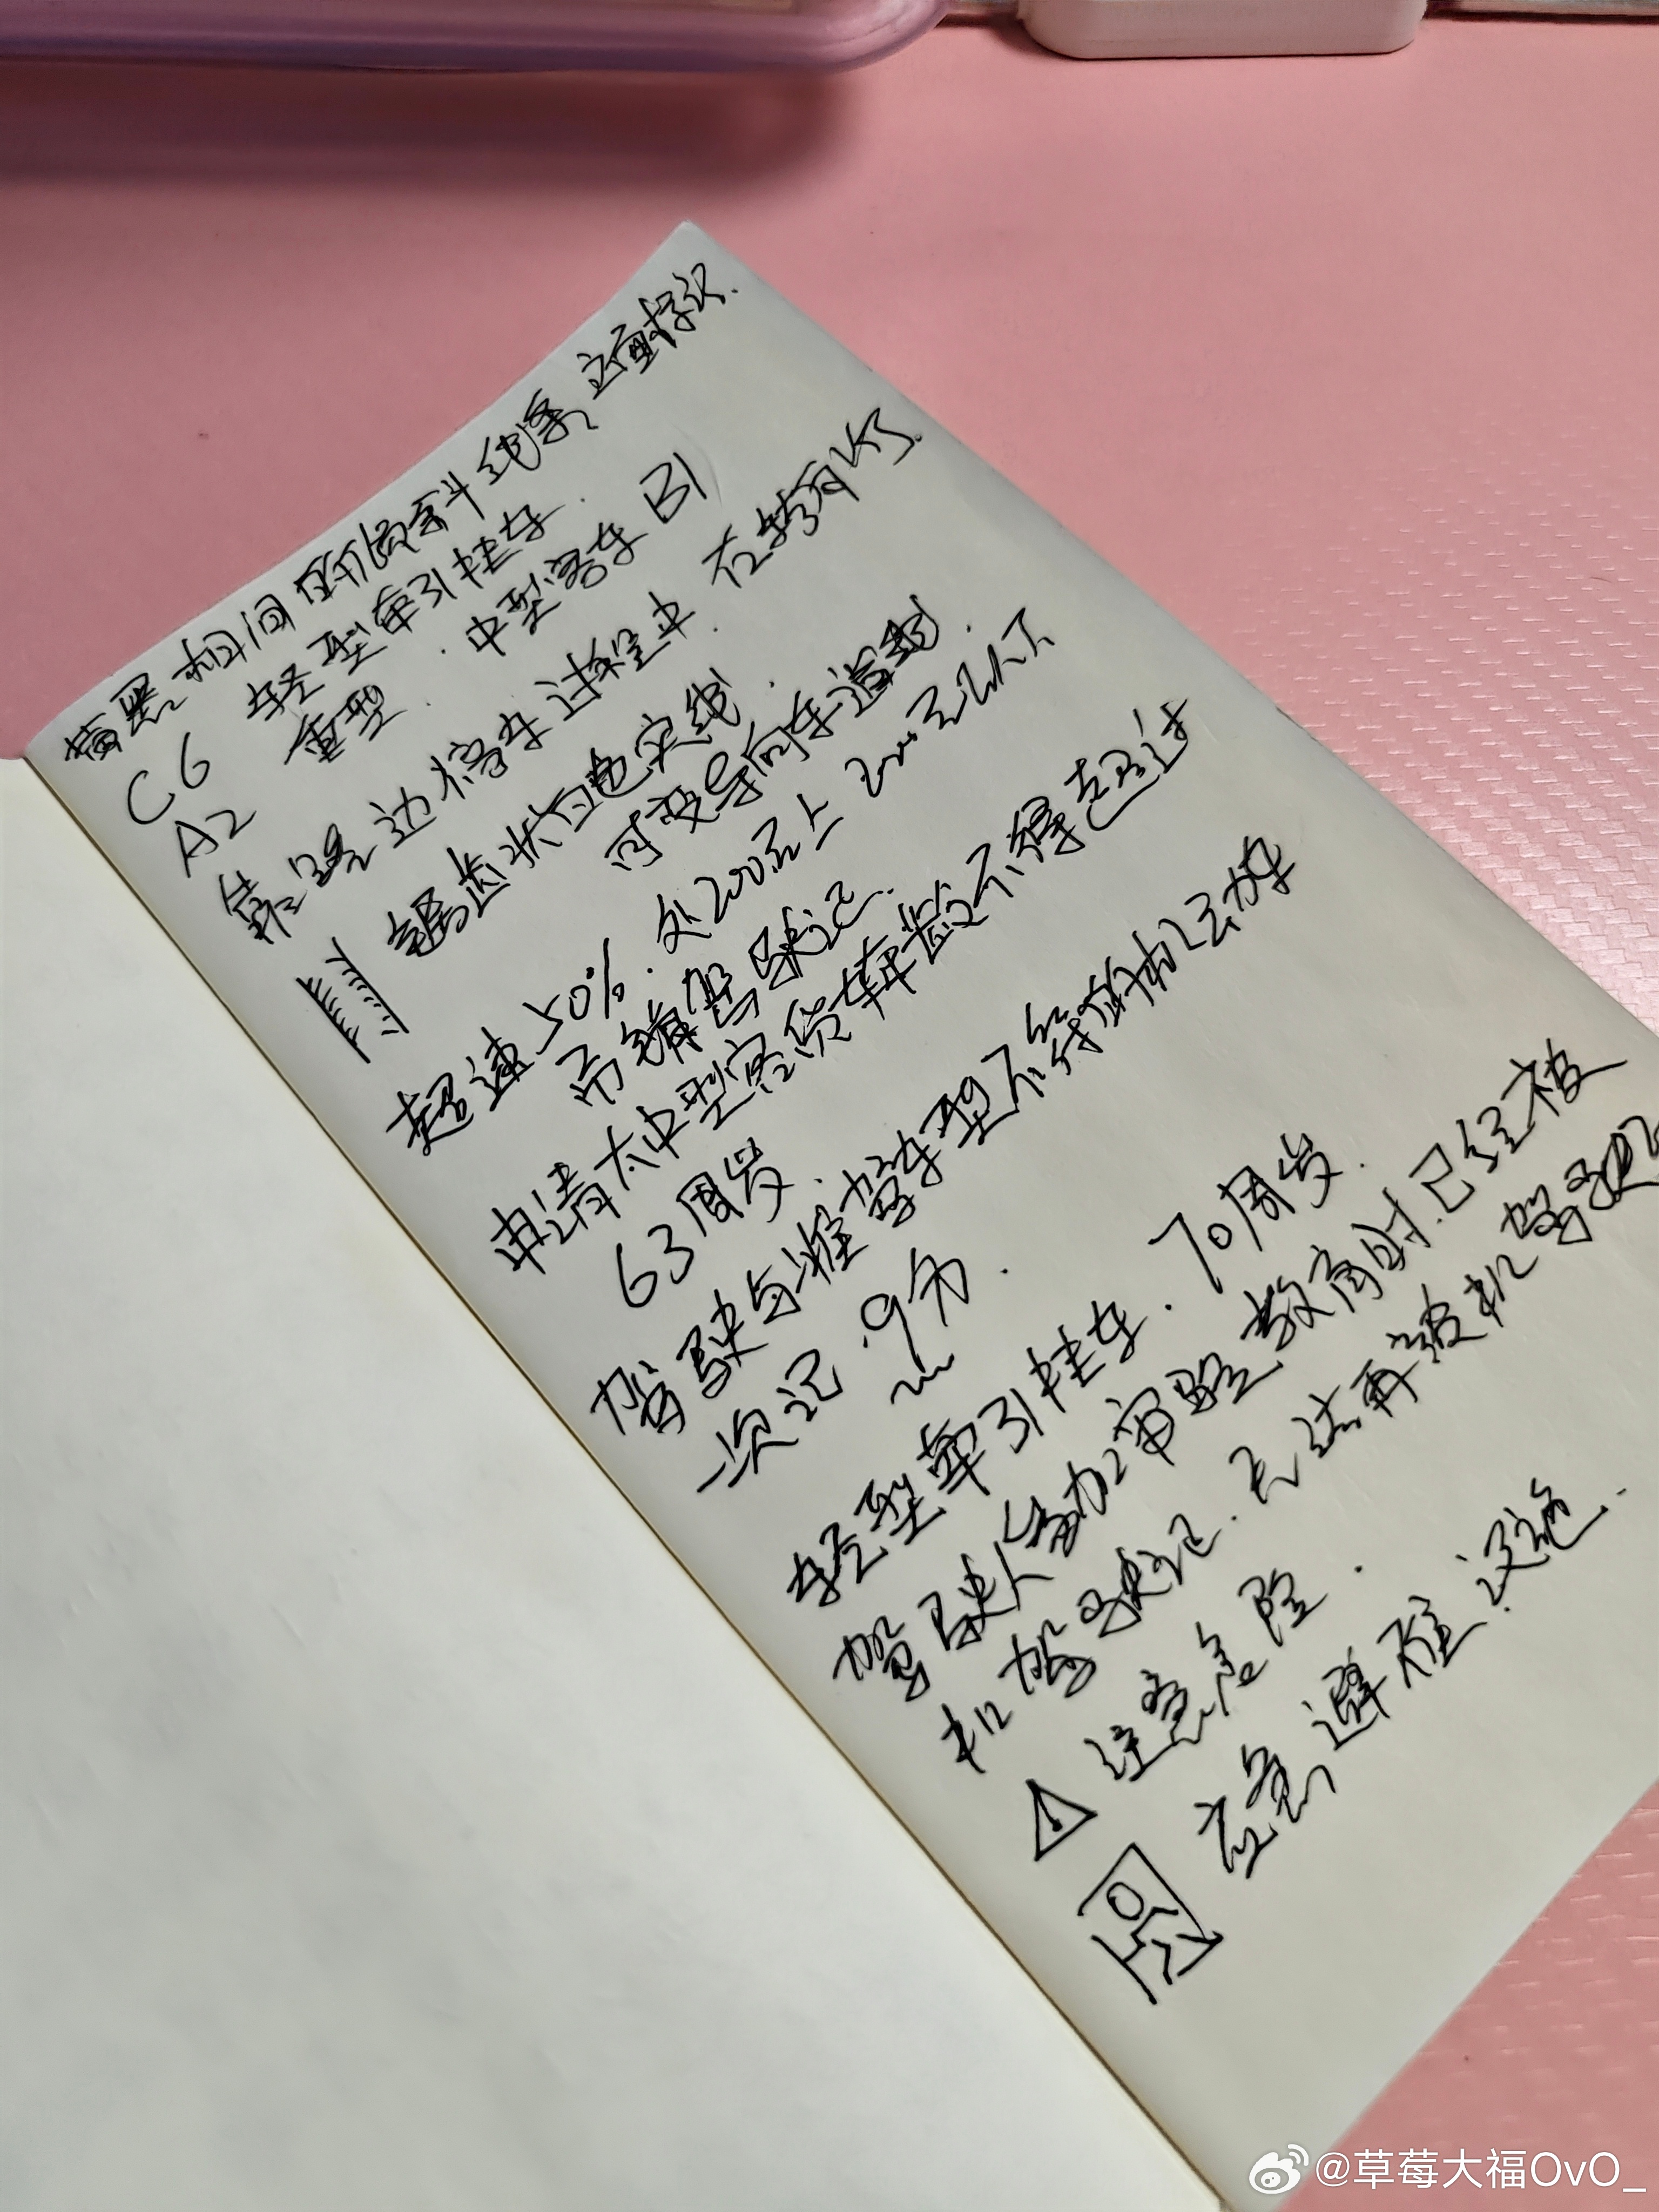 黄黑相间 倾斜线条 立面标识.
C6 轻型牵引挂车.
A2 重型. 中型客车 B1
靠路边停车过程中 右转向灯.
锯齿状白色实线.
可变导向车道线.
超速50%. 处200元上 2000元以下
吊销驾驶证.
申请大中型客货车年龄不得超过
63周岁.
驾驶与准驾车型不符的机动车
一次记.9分.
轻型牵引挂车. 70周岁.
驾驶人参加审验教育时.已经被
扣驾驶证.无法再被扣驾驶
注意危险.
应急避难设施.
@草莓大福OvO_